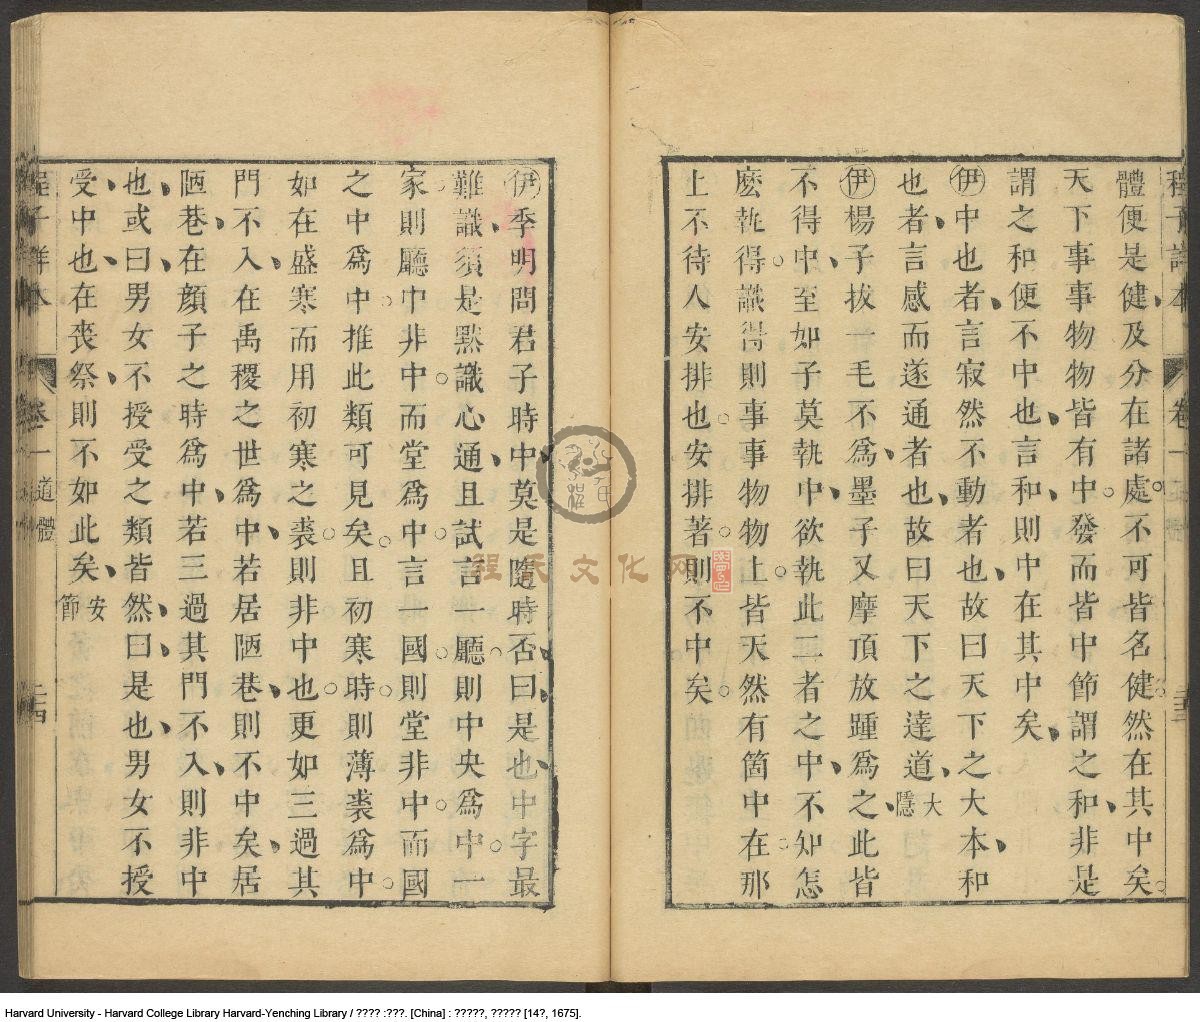 程子詳本
卷一
體便是健及分在諸處不可皆名健然在其中矣
天下事事物物皆有中發而皆中節謂之和非是
謂之和便不中也言和則中在其中矣
伊中也者言寂然不動者也故曰天下之大本和
也者言感而遂通者也故曰天下之達道大隱
伊楊子拔一毛不爲墨子又摩頂放踵爲之此皆
不得中至如子莫執中欲執此二者之中不知怎
麽執得識得則事事物物上皆天然有箇中在那
上不待人安排也安排著則不中矣
伊季明問君子時中莫是隨時否曰是也中字最
難識須是默識心通且試言一廳則中央爲中一
家則廳中非中而堂爲中言一國則堂非中而國
之中爲中推此類可見矣且初寒時則薄裘爲中
如在盛寒而用初寒之裘則非中也更如三過其
門不入在禹稷之世爲中若居陋巷則不中矣居
陋巷在顏子之時爲中若三過其門不入則非中
也或曰男女不授受之類皆然曰是也男女不授
受中也在喪祭則不如此矣安節
程子詳本
卷一
道體
程氏文化网
Harvard University - Harvard College Library Harvard-Yenching Library / ???? :???. [China] : ?????, ????? [14?, 1675].